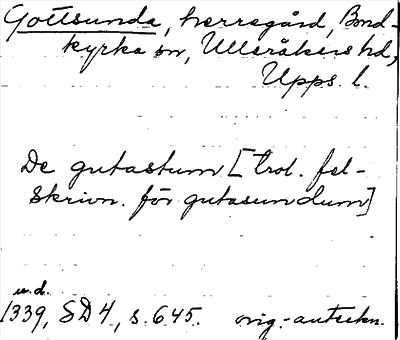 Gottsunda, herregård, Bond-
kyrka sn, Ulleråkers hd,
Upps. l.
De gutastum [trol. fel-
skrivn. för gutasundum]
u.d.
1339, SD 4, s. 645. orig.-anteckn.